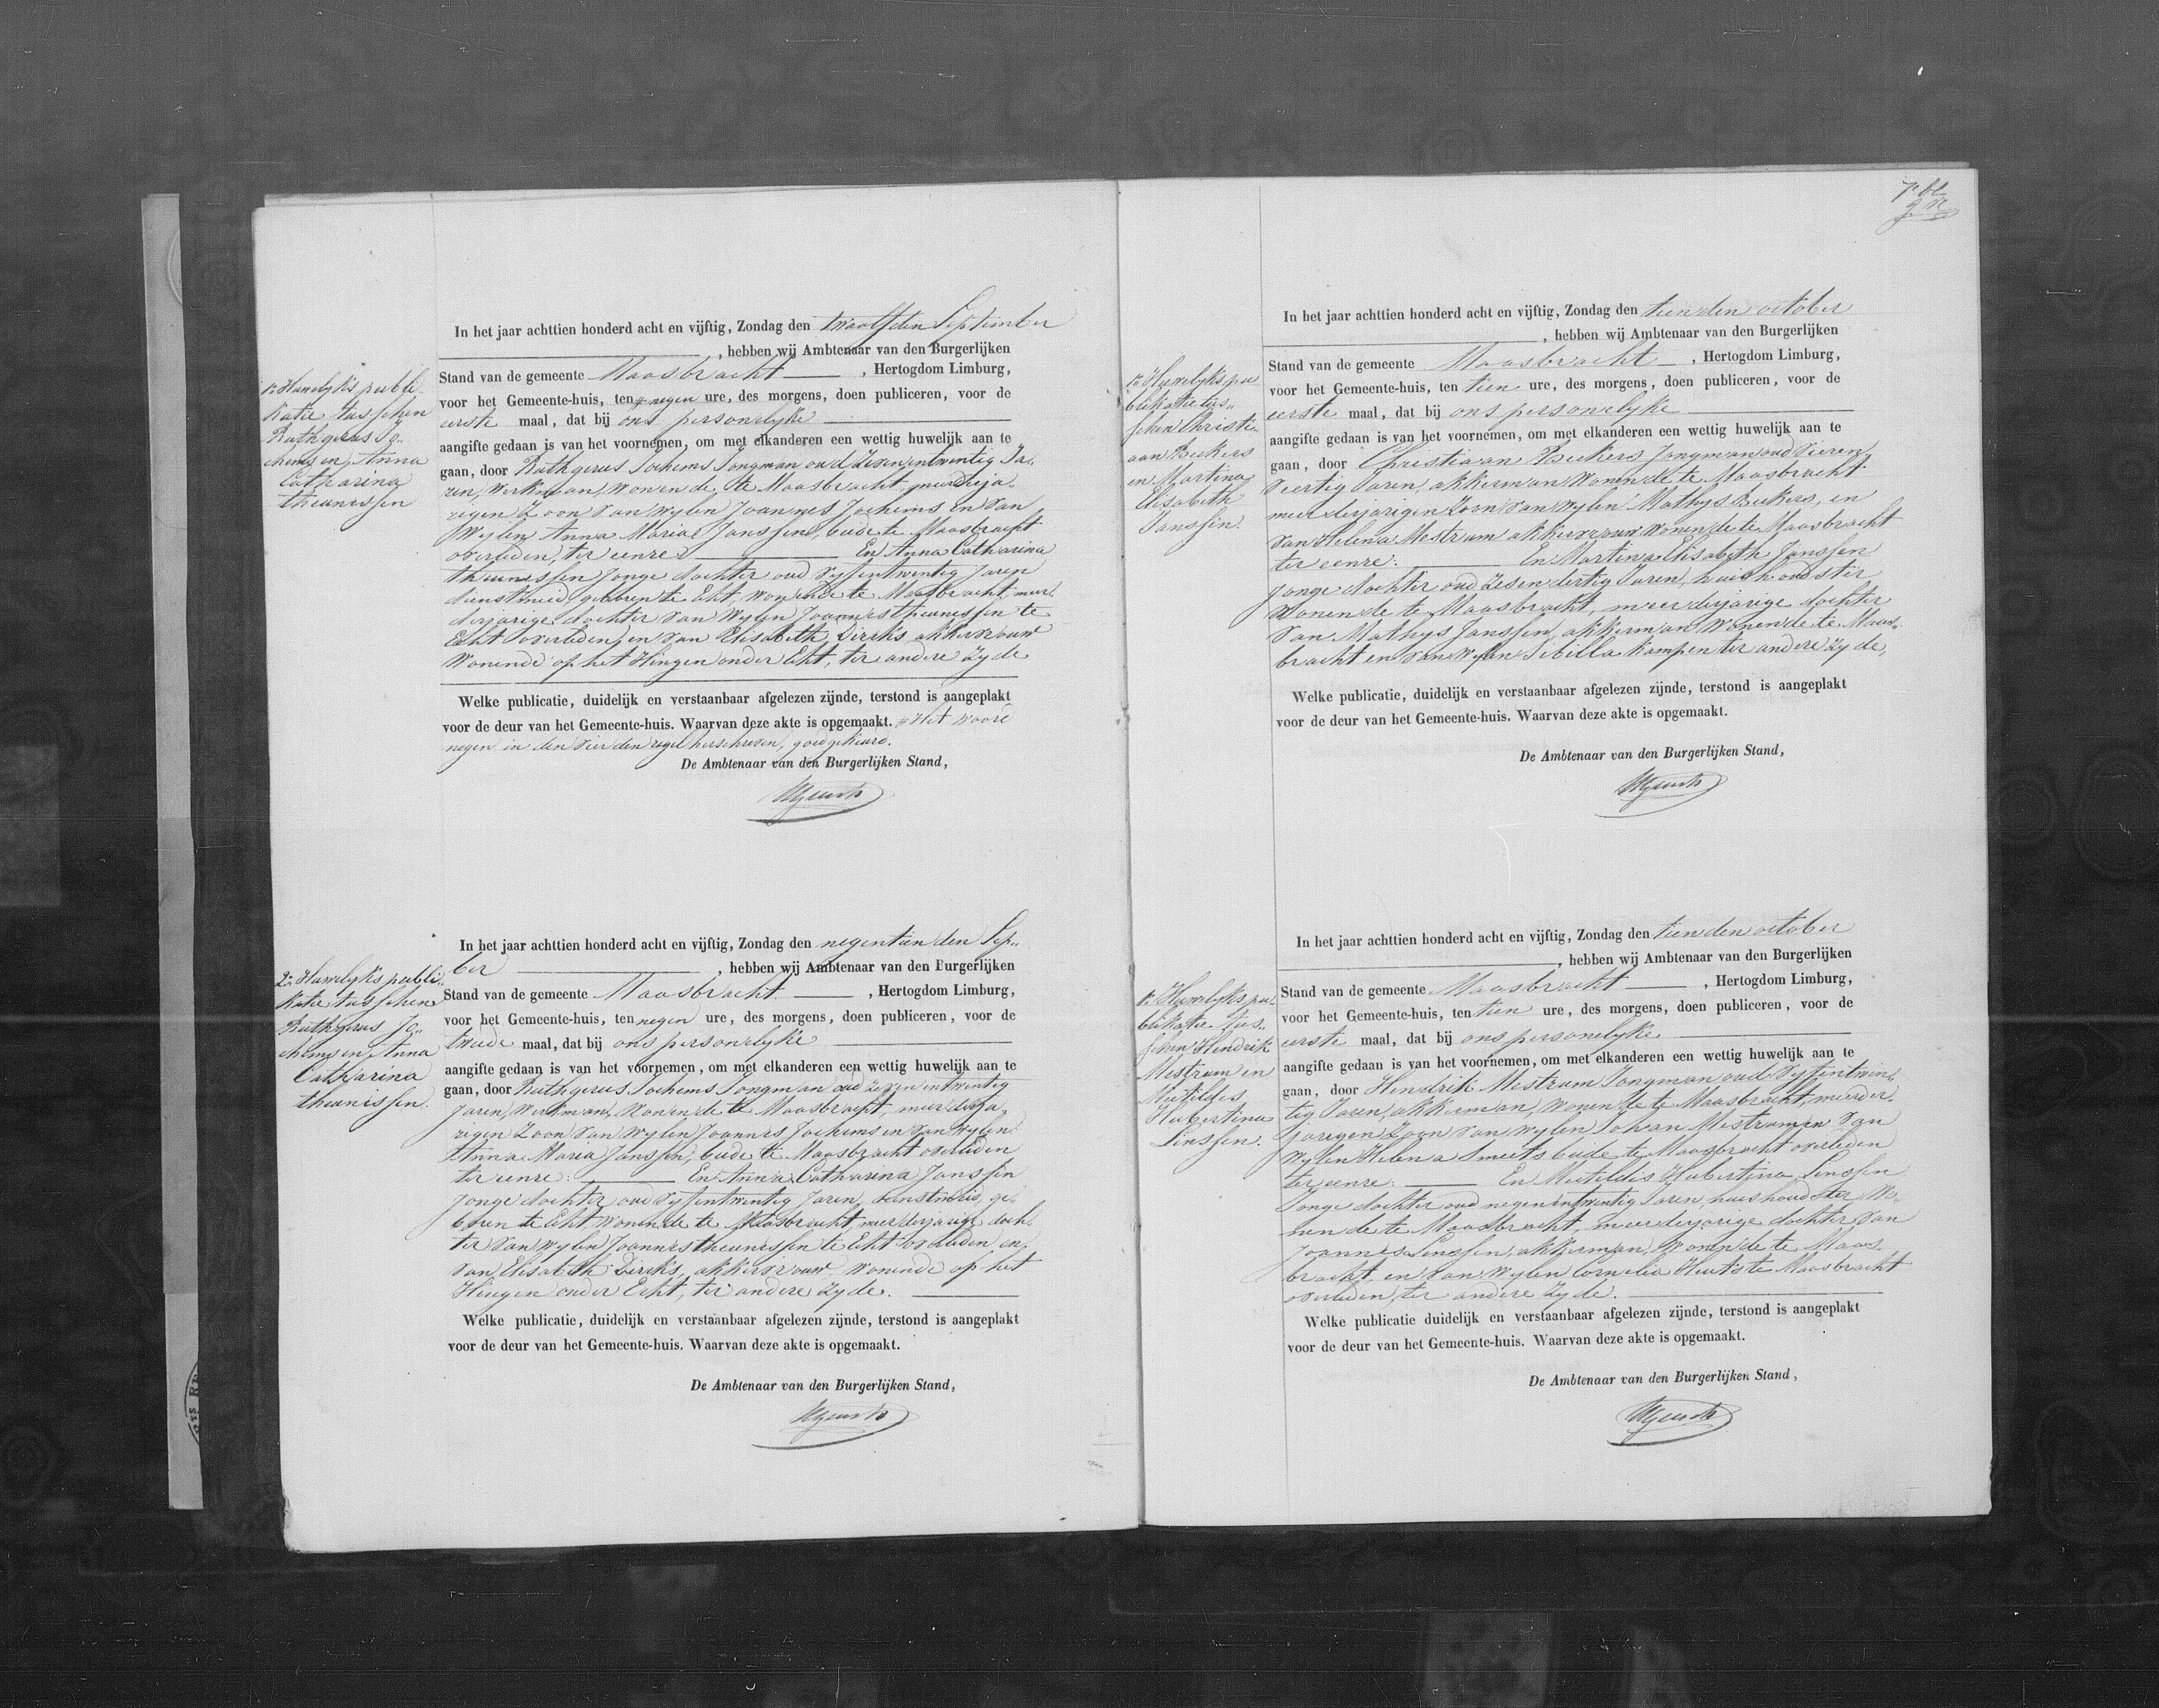 1e Huwelyks publi-
katie tusschen
Ruthgerus Jo-
chems en Anna
Catharina
Theunissen
In het jaar achttien honderd acht en vijftig, Zondag den twaalfden September
, hebben wij Ambtenaar van den Burgerlijken
Stand van de gemeente Maasbracht , Hertogdom Limburg,
voor het Gemeente-huis, ten # negen ure, des morgens, doen publiceren, voor de
eerste maal, dat bij ons personelyke
aangifte gedaan is van het voornemen, om met elkanderen een wettig huwelijk aan te
gaan, door Ruthgerus Jochems Jongman oud zeven entwentig Ja-
ren, werkman, wonende te Maasbracht meerderja-
rigen Zoon van wylen Joannes Jochems en van
Wylen Anna Maria Janssen, beide te Maasbracht
overleden, ter eenre En Anna Catharina
Theunissen Jonge dochter oud vyfentwentig Jaren
dienstmeid, geboren te Echt, wonende te Maasbracht, meer-
derjarige dochter van wylen Joannes theunissen te
Echt overleden, en van Elisabeth Dircks akkervrouw
Wonende op het Hingen onder Echt, ter andere zyde
Welke publicatie, duidelijk en verstaanbaar afgelezen zijnde, terstond is aangeplakt
voor de deur van het Gemeente-huis. Waarvan deze akte is opgemaakt. # Het woord
negen in den vierden regel herschreven, goedgekeurd.
De Ambtenaar van den Burgerlijken Stand,
2e Huwelyks publi-
katie tusschen
Ruthgerus Jo-
chems en Anna
Catharina
theunissen.
In het jaar achttien honderd acht en vijftig, Zondag den negentienden Sep-
ber , hebben wij Ambtenaar van den Burgerlijken
Stand van de gemeente Maasbracht , Hertogdom Limburg,
voor het Gemeente-huis, ten negen ure, des morgens, doen publiceren, voor de
tweede maal, dat bij ons personelyke
aangifte gedaan is van het voornemen, om met elkanderen een wettig huwelijk aan te
gaan, door Ruthgerus Jochems Jongman oud zeven entwentig
Jaren, werkman, Wonende te Maasbracht, meerderja-
rigen Zoon van wylen Joannes Jochems en van wylen
Anna Maria Janssen, beide te Maasbracht overleden
ter eenre: En Anna Catharina Janssen
Jonge dochter oud vyfentwentig Jaren, dienstmeid, ge-
boren te Echt, wonende te Maasbracht, meerderjarige doch-
ter van wylen Joannes theunissen te Echt overleden en
van Elisabeth Dircks, akkervrouw Wonende op het
Hingen onder Echt, ter andere zyde.
Welke publicatie, duidelijk en verstaanbaar afgelezen zijnde, terstond is aangeplakt
voor de deur van het Gemeente-huis. Waarvan deze akte is opgemaakt.
De Ambtenaar van den Burgerlijken Stand,
7e bl
1e Huwelyks pu-
blikatie tus-
schen Christi-
aan Beekers
en Martina
Elisabeth
Janssen.
In het jaar achttien honderd acht en vijftig, Zondag den tienden october
, hebben wij Ambtenaar van den Burgerlijken
Stand van de gemeente Maasbracht , Hertogdom Limburg,
voor het Gemeente-huis, ten tien ure, des morgens, doen publiceren, voor de
eerste maal, dat bij ons personelyke
aangifte gedaan is van het voornemen, om met elkanderen een wettig huwelijk aan te
gaan, door Christiaan Beekers Jongman oud vieren
veertig Jaren, akkerman Wonende te Maasbracht
meerderjarigen Zoon van wylen Mathys Beekers, en
van Helena Mestrum akkervrouw Wonende te Maasbracht
ter eenre: En Martina Elisabeth Janssen
Jonge dochter oud zesendertig Jaren, huishoudster
Wonende te Maasbracht, meerderjarige dochter
van Mathys Janssen, akkerman Wonende te Maas-
bracht en van wylen Sibilla Kampen ter andere zyde,
Welke publicatie, duidelijk en verstaanbaar afgelezen zijnde, terstond is aangeplakt
voor de deur van het Gemeente-huis. Waarvan deze akte is opgemaakt.
De Ambtenaar van den Burgerlijken Stand,
1e Huwelyks pu-
blikatie tus-
schen Hendrik
Mestrum en
Metildes
Hubertina
Linssen.
In het jaar achttien honderd acht en vijftig, Zondag den tienden october
, hebben wij Ambtenaar van den Burgerlijken
Stand van de gemeente Maasbracht , Hertogdom Limburg,
voor het Gemeente-huis, ten tien ure, des morgens, doen publiceren, voor de
eerste maal, dat bij ons personelyke
aangifte gedaan is van het voornemen, om met elkanderen een wettig huwelijk aan te
gaan, door Hendrik Mestrum Jongman oud vyfentwin-
tig Jaren, akkerman, wonende te Maasbracht, meerder-
jarigen Zoon van wylen Johan Mestrum en van
wylen Helena Smeets beide te Maasbracht overleden
ter eenre: En Metildis Hubertina Linssen
Jonge dochter oud negenentwintig Jaren, huishoudster, Wo-
nende te Maasbracht, meerderjarige dochter van
Joannes Linssen, akkerman, Wonende te Maas-
bracht, en van wylen Cornelia Heuts te Maasbracht
overleden, ter andere zyde.
Welke publicatie duidelijk en verstaanbaar afgelezen zijnde, terstond is aangeplakt
voor de deur van het Gemeente-huis. Waarvan deze akte is opgemaakt.
De Ambtenaar van den Burgerlijken Stand,